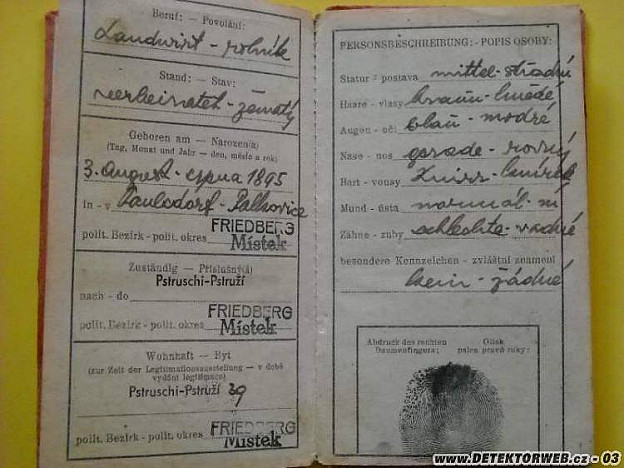 Beruf: — Povolání:
Landwirt - rolník
Stand: — Stav:
verheiratet - ženatý
Geboren am — Narozen(a)
(Tag, Monat und Jahr — den, měsíc a rok)
3. August - srpna 1895
in - v Paulsdorf - Palkovice
FRIEDBERG
polit. Bezirk - polit. okres Místek
Zuständig — Příslušný(á)
Pstruschi-Pstruží
nach - do
FRIEDBERG
polit. Bezirk - polit. okres Místek
Wohnhaft — Byt
(zur Zeit der Legitimationsausstellung — v době
vydání legitimace)
Pstruschi-Pstruží 39
FRIEDBERG
polit. Bezirk - polit. okres Místek
PERSONSBESCHREIBUNG: - POPIS OSOBY:
Statur - postava mittel - střední
Haare - vlasy braun - hnědé
Augen - oči blau - modré
Nase - nos gerade - rovný
Bart - vousy - knírek
Mund - ústa normal - ní
Zähne - zuby schlechte - vadné
besondere Kennzeichen - zvláštní znamení
kein - žádné
Abdruck des rechten
Daumenfingers:
Otisk
palce pravé ruky:
www.DETEKTORWEB.cz - 03